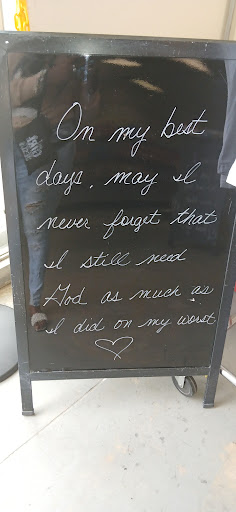 On my best
days, may I
never forget that
I still need
God as much as
I did on my worst